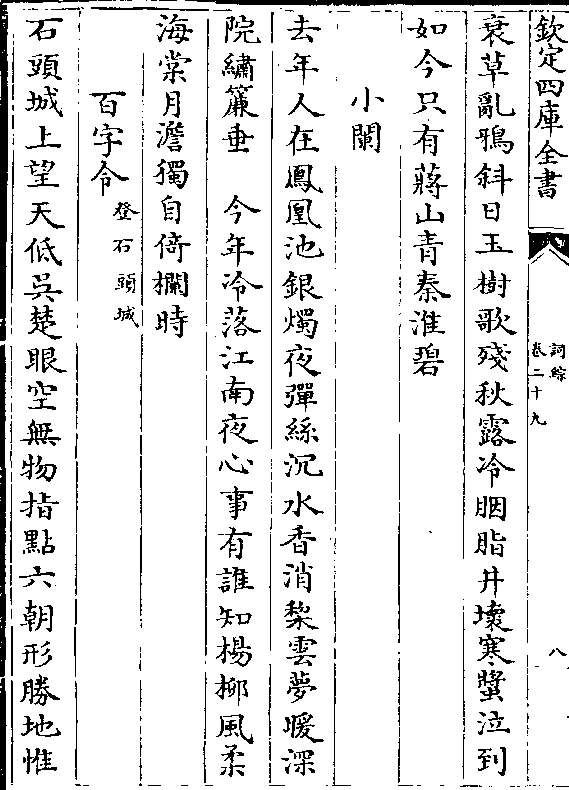 欽定四庫全書
詞綜
卷二十九
八
衰草亂鴉斜日玉樹歌殘秋露冷胭脂井壞寒螿泣到
如今只有蔣山青秦淮碧
小闌
去年人在鳳凰池銀燭夜彈絲沉水香消棃雲夢暖深
院繡簾垂　今年冷落江南夜心事有誰知楊柳風柔
海棠月澹獨自倚欄時
百字令登石頭城
石頭城上望天低吳楚眼空無物指點六朝形勝地惟